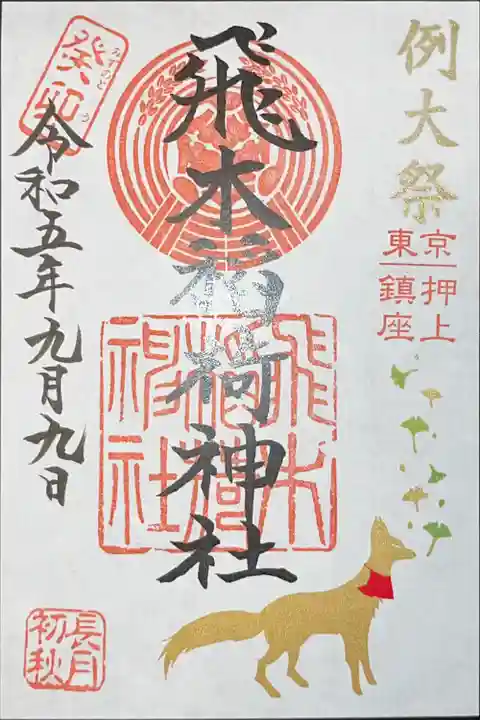 例大祭
東京
押上
鎮座
飛木稲荷神社
飛木稲荷神社
癸卯
みずのと
う
令和五年九月九日
長月
初秋